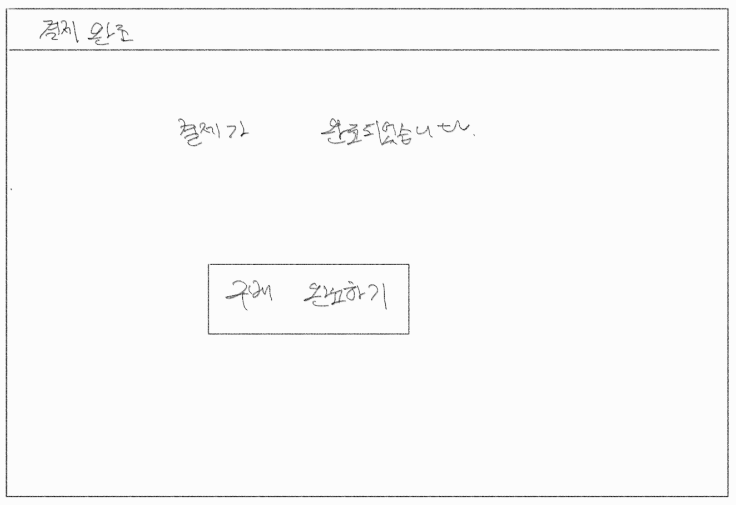 결제 완료
결제가 완료되었습니다.
구매 완료하기